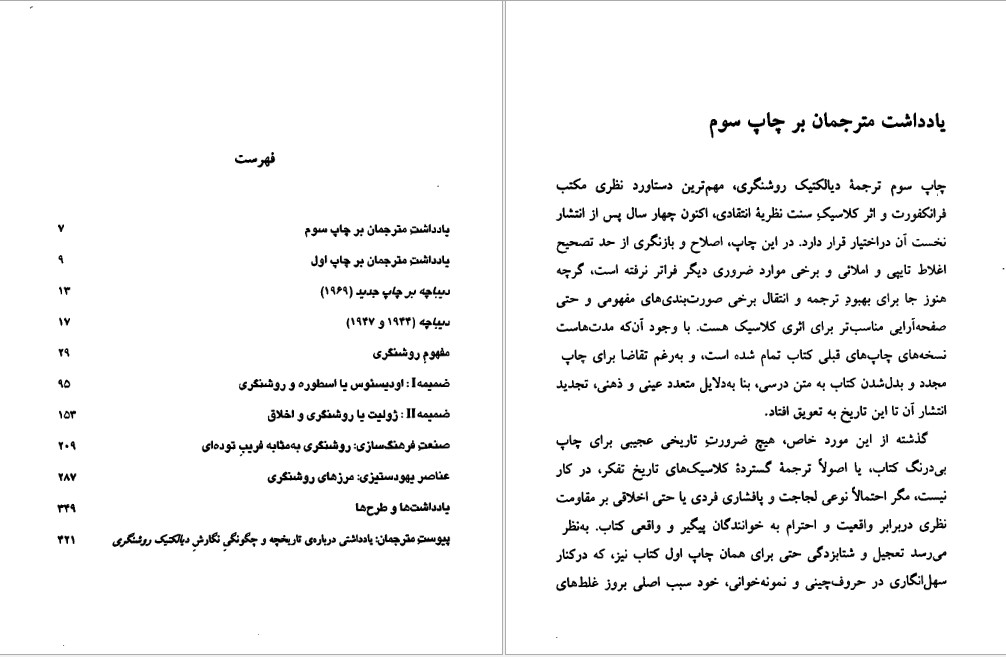 یادداشت مترجمان بر چاپ سوم
چاپ سوم ترجمهٔ دیالکتیک روشنگری، مهم‌ترین دستاورد نظری مکتب
فرانکفورت و اثر کلاسیکِ سنت نظریهٔ انتقادی، اکنون چهار سال پس از انتشار
نخست آن دراختیار قرار دارد. در این چاپ، اصلاح و بازنگری از حد تصحیح
اغلاط تایپی و املائی و برخی موارد ضروری دیگر فراتر نرفته است، گرچه
هنوز جا برای بهبودِ ترجمه و انتقال برخی صورت‌بندی‌های مفهومی و حتی
صفحه‌آرایی مناسب‌تر برای اثری کلاسیک هست. با وجود آن‌که مدت‌هاست
نسخه‌های چاپ‌های قبلی کتاب تمام شده است، و به‌رغم تقاضا برای چاپ
مجدد و بدل‌شدن کتاب به متن درسی، بنا به‌دلایل متعدد عینی و ذهنی، تجدید
انتشار آن تا این تاریخ به تعویق افتاد.
گذشته از این مورد خاص، هیچ ضرورتِ تاریخی عجیبی برای چاپ
بی‌درنگ کتاب، یا اصولاً ترجمهٔ گستردهٔ کلاسیک‌های تاریخ تفکر، در کار
نیست، مگر احتمالاً نوعی لجاجت و پافشاری فردی یا حتی اخلاقی بر مقاومت
نظری دربرابر واقعیت و احترام به خوانندگان پیگیر و واقعی کتاب. به‌نظر
می‌رسد تعجیل و شتابزدگی حتی برای همان چاپ اول کتاب نیز، که درکنار
سهل‌انگاری در حروف‌چینی و نمونه‌خوانی، خود سبب اصلی بروز غلط‌های
فهرست
یادداشتِ مترجمان بر چاپ سوم ۷
یادداشتِ مترجمان بر چاپ اول ۹
دیباچه بر چاپ جدید (۱۹۶۹) ۱۳
دیباچه (۱۹۴۴ و ۱۹۴۷) ۱۷
مفهوم روشنگری ۲۹
ضمیمهI: اودیسئوس یا اسطوره و روشنگری ۹۵
ضمیمهII: ژولیت یا روشنگری و اخلاق ۱۵۳
صنعتِ فرهنگ‌سازی: روشنگری به‌مثابه فریبِ توده‌ای ۲۰۹
عناصر یهودستیزی: مرزهای روشنگری ۲۸۷
یادداشت‌ها و طرح‌ها ۳۴۹
پیوستِ مترجمان: یادداشتی درباره‌ی تاریخچه و چگونگیِ نگارشِ دیالکتیک روشنگری ۴۲۱